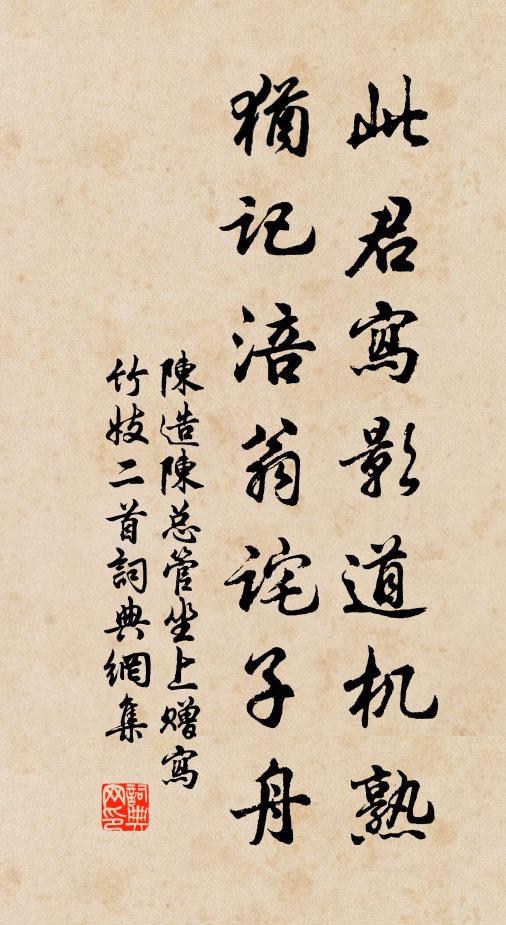 此君寫影道机熟
猶記涪翁詫子舟
陳造陳总管坐上赠寫
竹妓二首詞典網集
詞典
网印